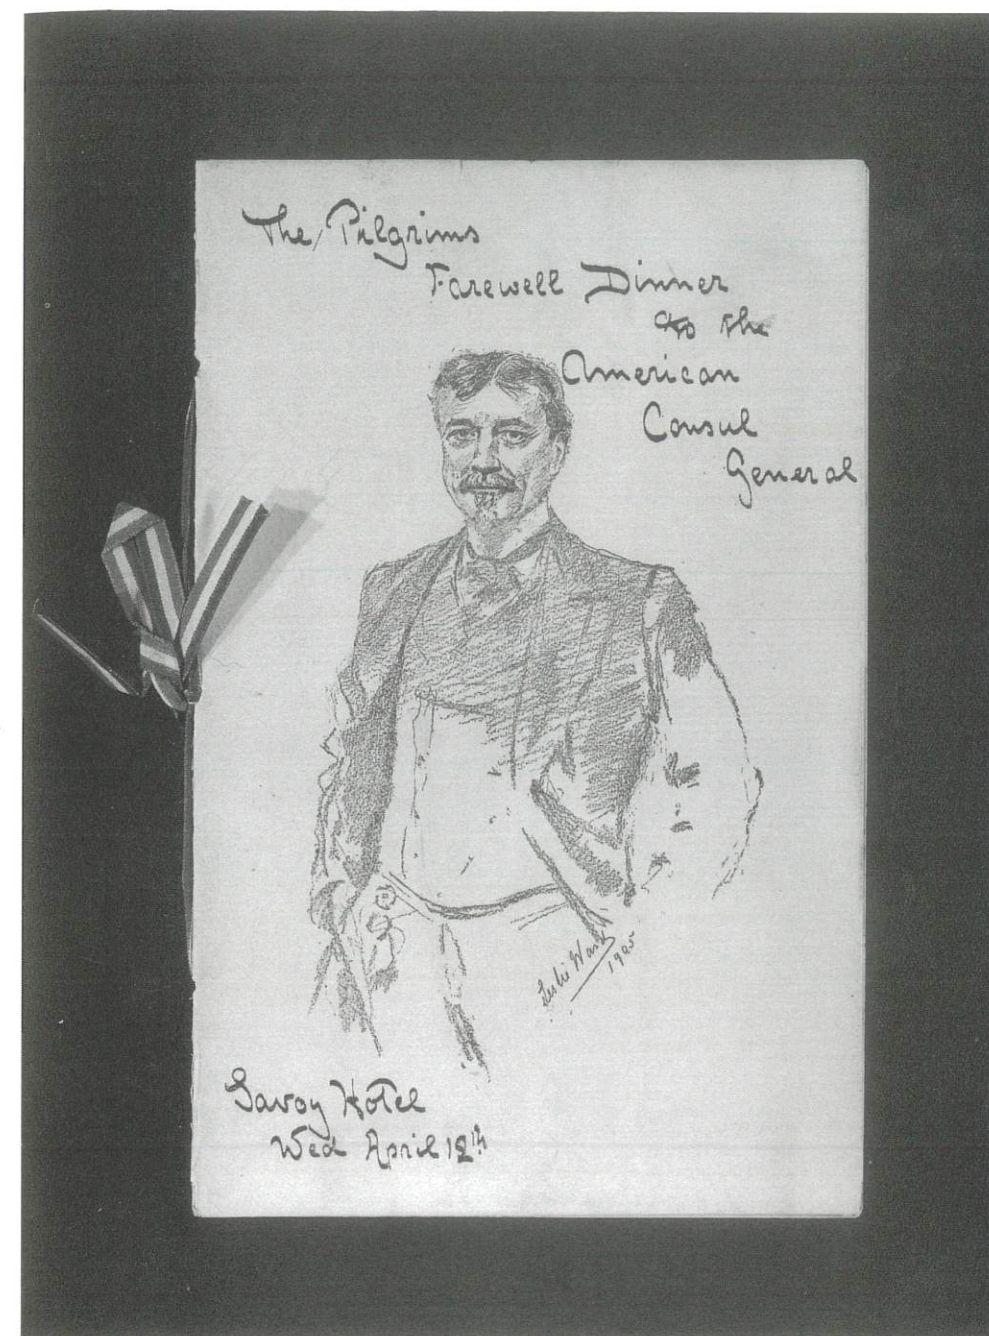 The Pilgrims
Farewell Dinner
to the
American
Consul
General
Leslie Ward
1905
Savoy Hotel
Wed April 12th